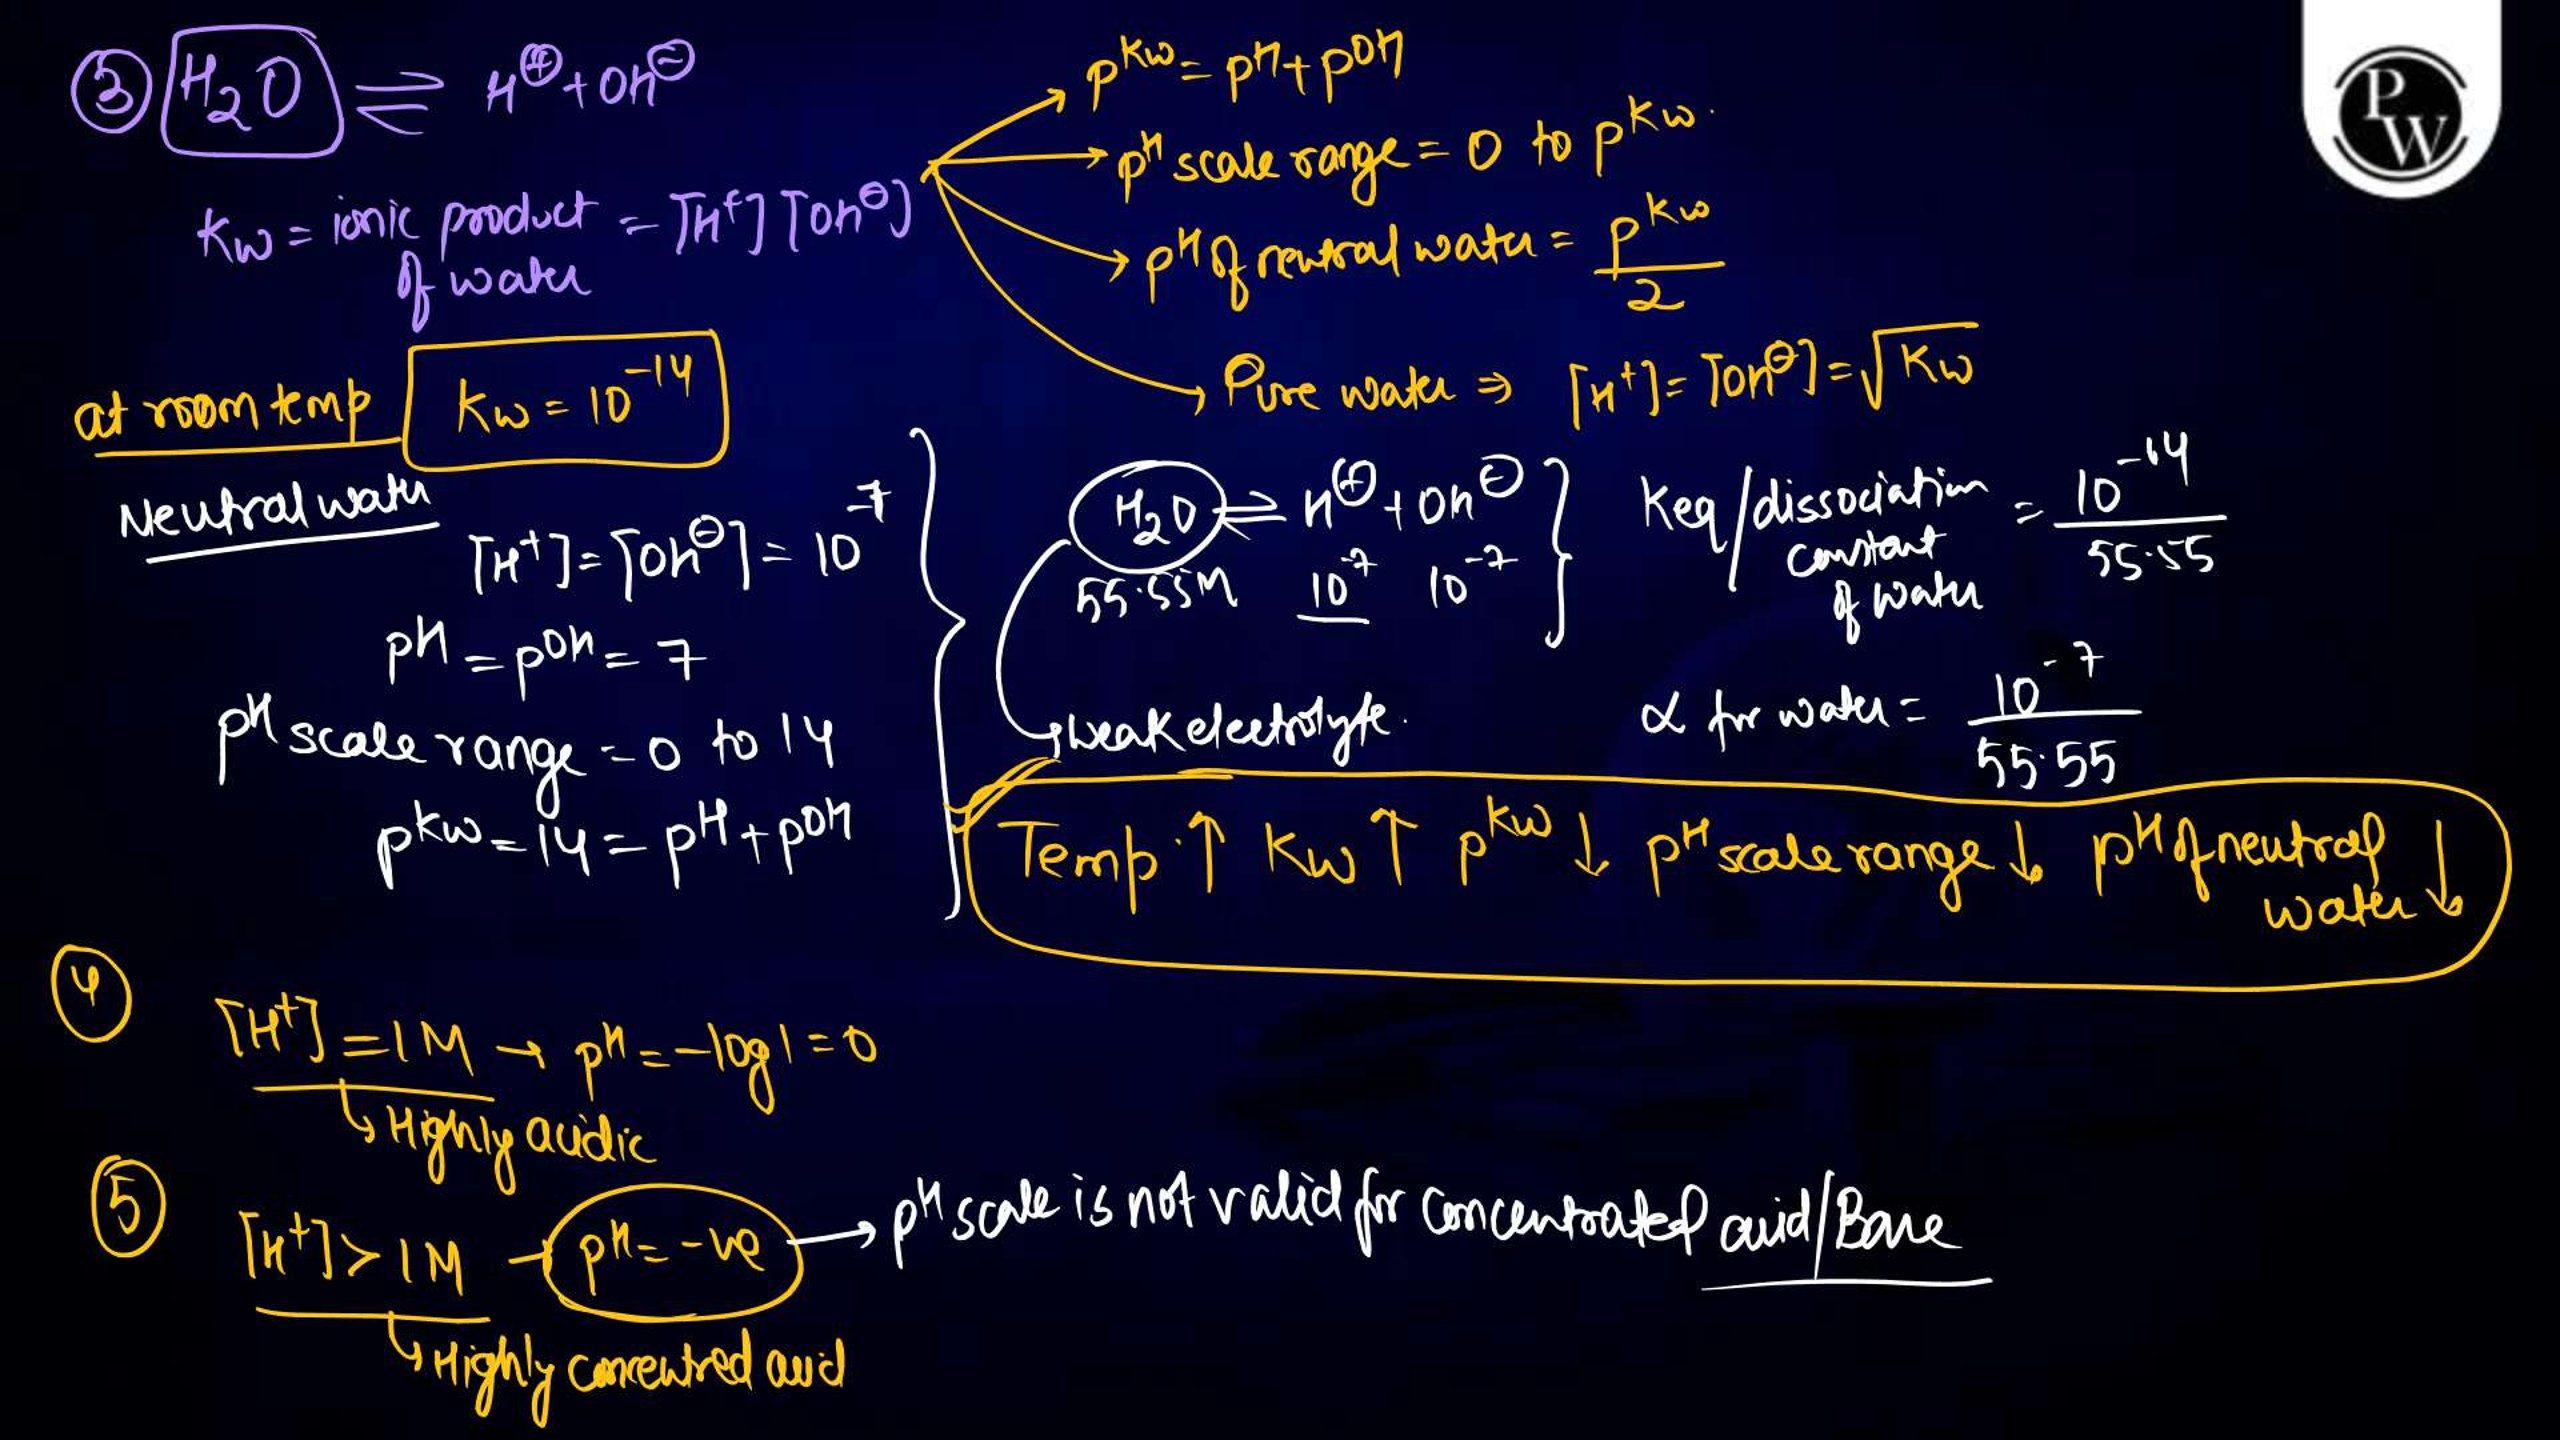 ③ H₂O ⇌ H⊕ + OH⊖
Kw = ionic product of water = [H⁺] [OH⊖]
pKw = pH + pOH
pH scale range = 0 to pKw.
pH of neutral water = pKw / 2
Pure water ⇒ [H⁺] = [OH⊖] = √Kw
at room temp Kw = 10⁻¹⁴
Neutral water
[H⁺] = [OH⊖] = 10⁻⁷
pH = pOH = 7
pH scale range = 0 to 14
pKw = 14 = pH + pOH
H₂O ⇌ H⊕ + OH⊖
55.55M 10⁻⁷ 10⁻⁷
weak electrolyte.
Keq/dissociation constant of water = 10⁻¹⁴ / 55.55
α for water = 10⁻⁷ / 55.55
Temp ↑ Kw ↑ pKw ↓ pH scale range ↓ pH of neutral water ↓
④ [H⁺] = 1M → pH = -log1 = 0
↳ Highly acidic
⑤ [H⁺] > 1M → pH = -ve → pH scale is not valid for concentrated acid/Base
↳ Highly concentred acid
PW